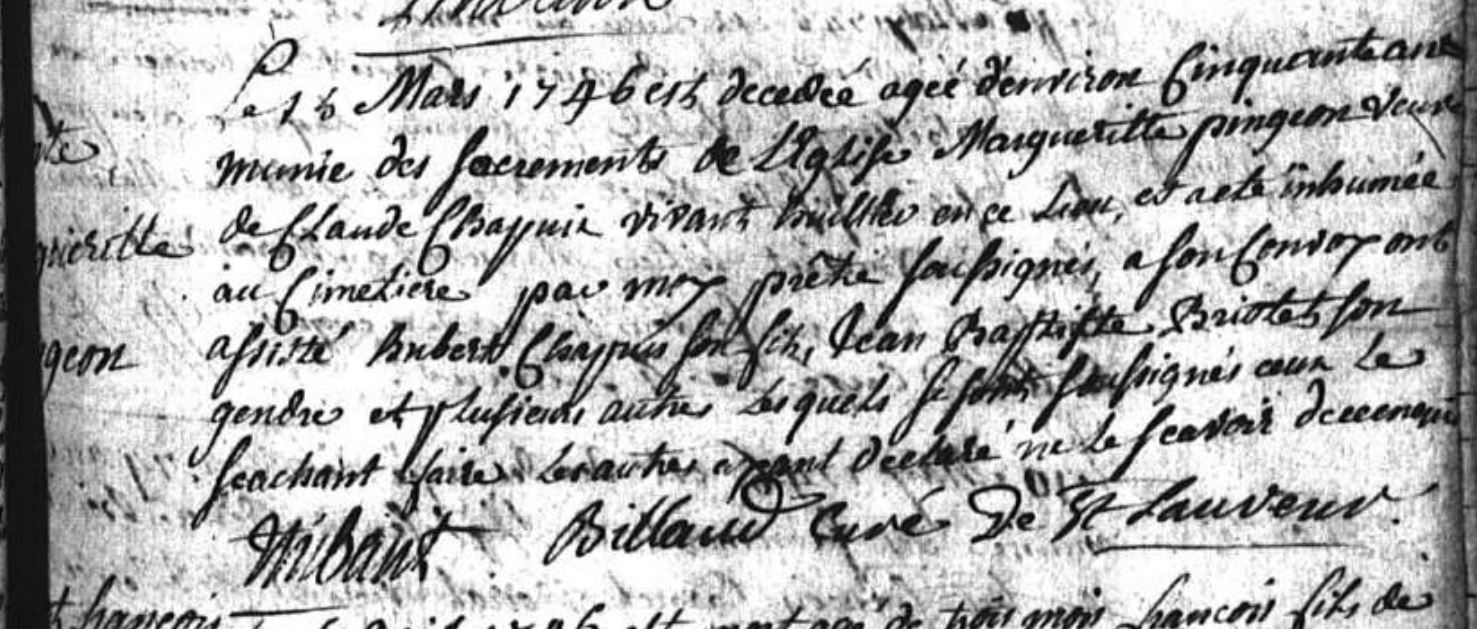 Le 18 Mars 1746 est decedée agée d'environ Cinquante ans
munie des sacrements de L'Eglise Margueritte pingeon veuve
de Claude Chappuix vivant huillier en ce Lieu, et a eté inhumée
au Cimetiere par moy prêtre soussignés, a son Convoy ont
assisté hubert Chappuis son fils, Jean Baptiste Briotet son
gendre et plusieurs autres lesquels se sont soussignés ceux Le
scachant faire les autres ayant declaré ne le scavoir de ce enquis
Billaud Curé De St Sauveur.
geon
françois mort agé de trois mois françois fils de